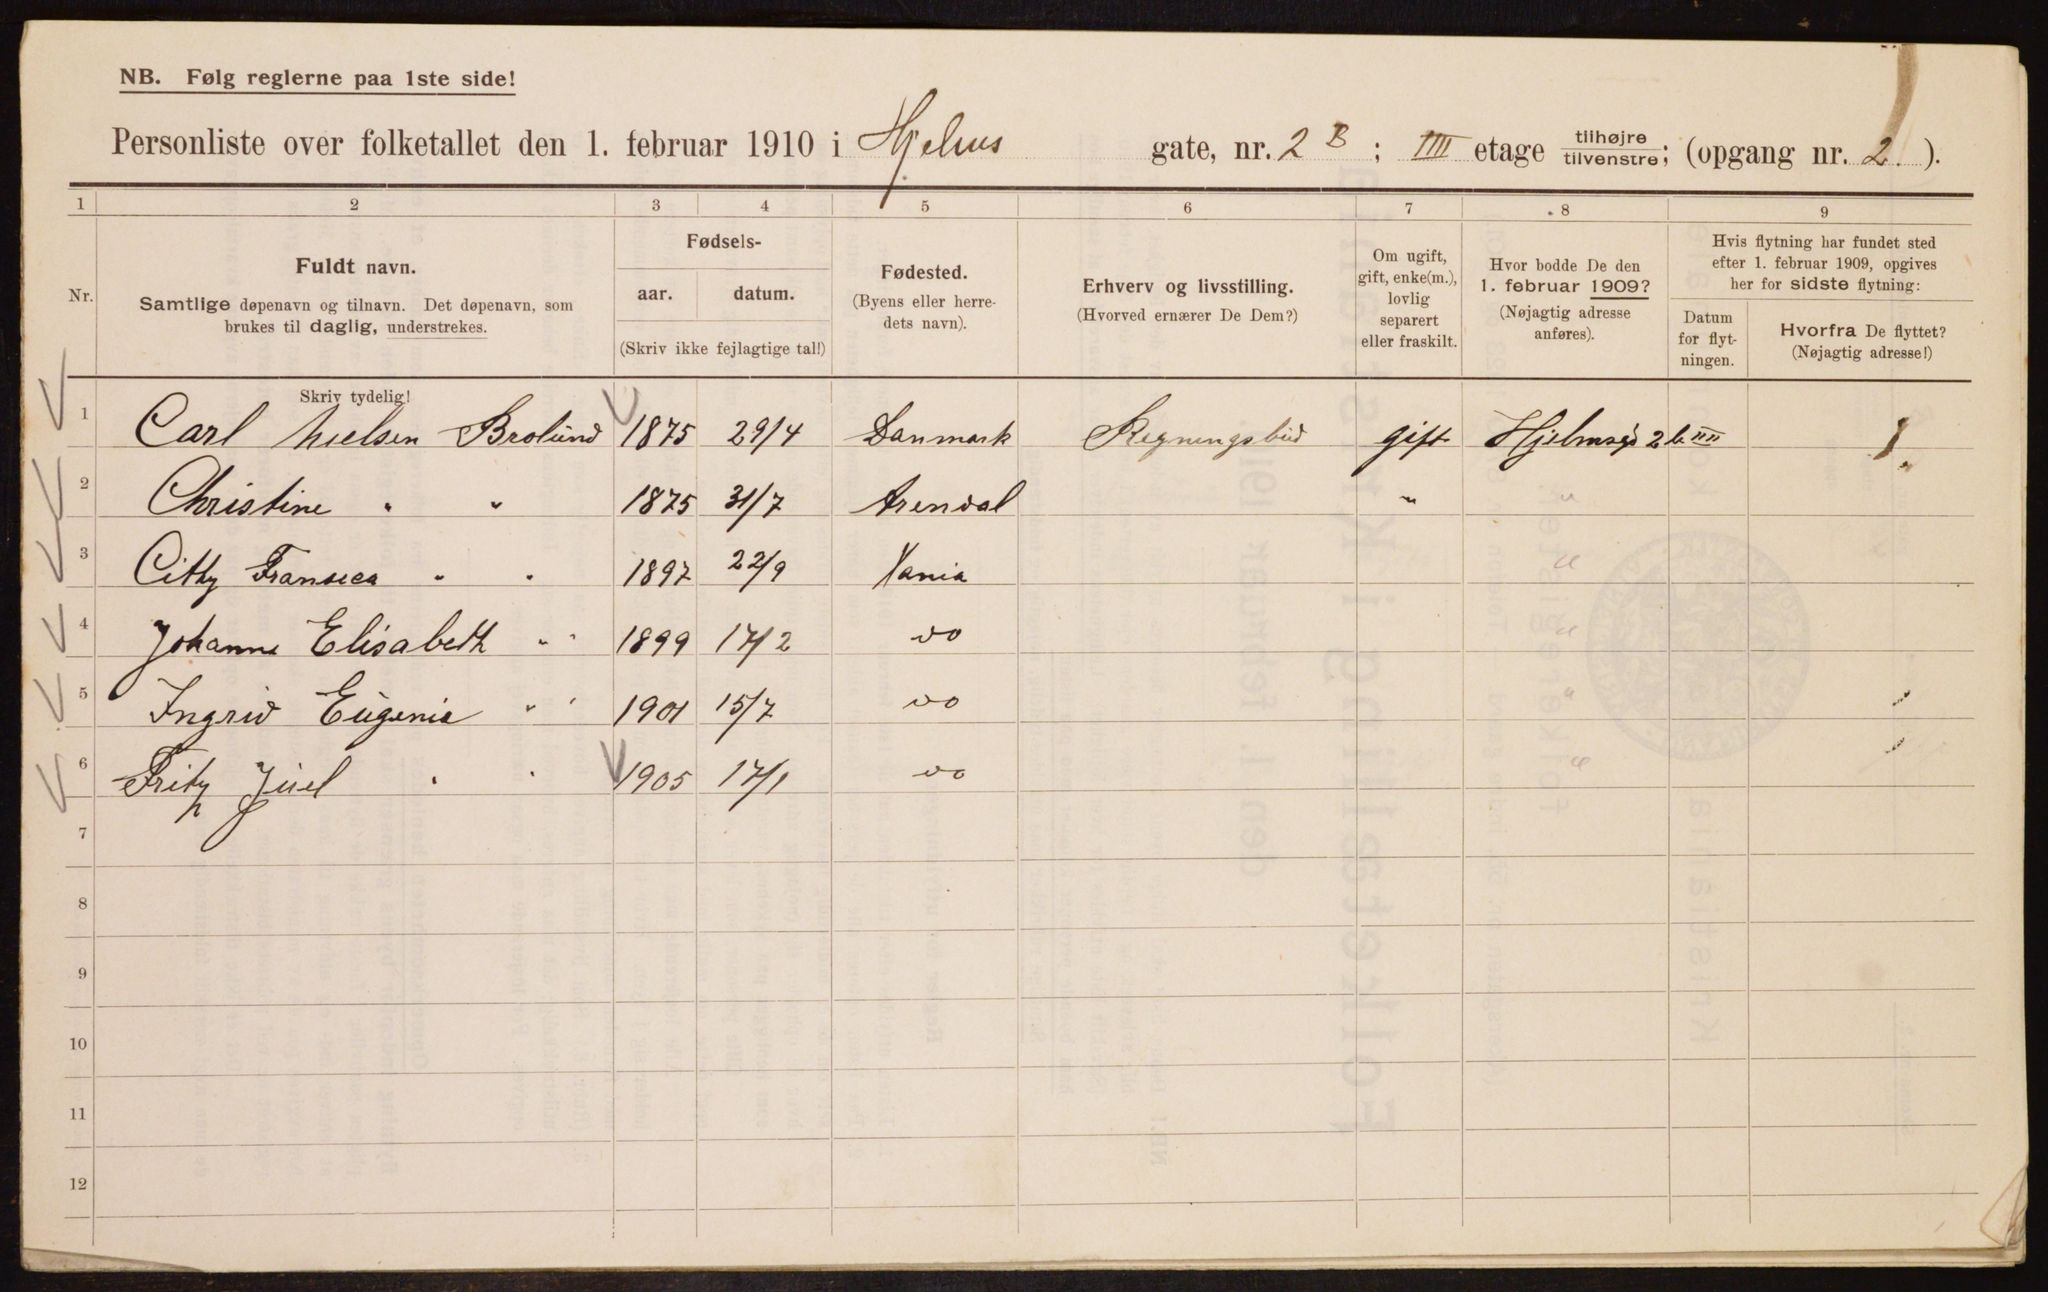 NB. Følg reglerne paa 1ste side!
Personliste over folketallet den 1. februar 1910 i Hjelms gate, nr. 2 B ; IIII etage tilhøjre/tilvenstre; (opgang nr. 2. ).
1 2 3 4 5 6 7 8 9
Nr.
Fuldt navn.
Samtlige døpenavn og tilnavn. Det døpenavn, som
brukes til daglig, understrekes.
Skriv tydelig!
Fødsels-
aar. datum.
(Skriv ikke fejlagtige tal!)
Fødested.
(Byens eller herre-
dets navn).
Erhverv og livsstilling.
(Hvorved ernærer De Dem?)
Om ugift,
gift, enke(m.),
lovlig
separert
eller fraskilt.
Hvor bodde De den
1. februar 1909?
(Nøjagtig adresse
anføres).
Hvis flytning har fundet sted
efter 1. februar 1909, opgives
her for sidste flytning:
Datum
for flyt-
ningen.
Hvorfra De flyttet?
(Nøjagtig adresse!)
1 Carl Nielsen Brolund 1875 29/4 Danmark Regningsbud gift Hjelmsgd 2 b IIII
2 Christine " " 1875 31/7 Arendal " "
3 Cithy Franseca " " 1897 22/9 Xania "
4 Johanne Elisabeth " " 1899 17/2 do "
5 Ingrid Eugenia " " 1901 15/7 do "
6 Fritz Juel " " 1905 17/1 do "
7
8
9
10
11
12